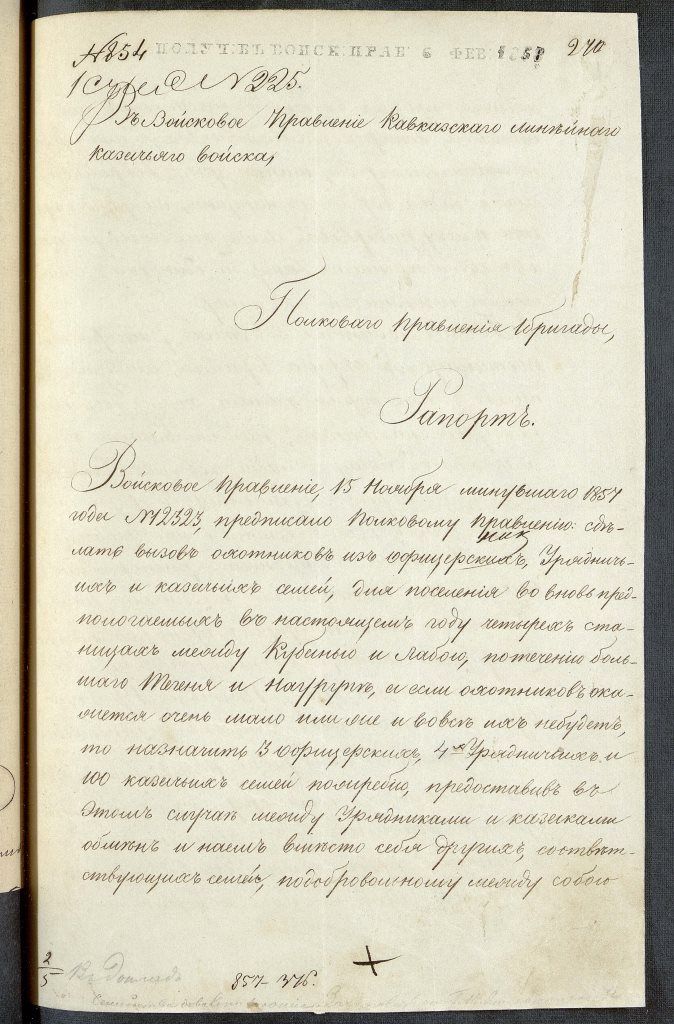 № 854 ПОЛУЧ: ВЪ ВОЙСК: ПРАВ 6 ФЕВ: 1858 270
1 № 225.
Въ Войсковое Правленіе Кавказскаго линѣйнаго
казачьяго войска,
Полковаго Правленія 1 бригады,
Рапортъ.
Войсковое Правленіе, 15 Ноября минувшаго 1857
года № 12323, предписало Полковому Правленію: сдѣ-
лать вызовъ охотниковъ изъ офицерскихъ, Урядничь-
ихъ и казачьихъ семей, для поселенія во вновь пред-
пологаемыхъ въ настоящемъ году четырехъ ста-
ницахъ между Кубанью и Лабою, потеченію боль-
шаго Тегеня и Науруpѣ, а если охотниковъ ока-
жется очень мало или же и вовсѣ ихъ небудетъ,
то назначить 3 офицерскихъ, 4х Урядничьихъ и
100 казачьихъ семей пожребію, предоставивъ въ
этомъ случаѣ между Урядниками и казаками
обмѣнъ и наемъ вмѣсто себя другихъ, соотвѣт-
ствующихъ семей, подобровольному между собою
2/5 Въ Докладъ 857-376.